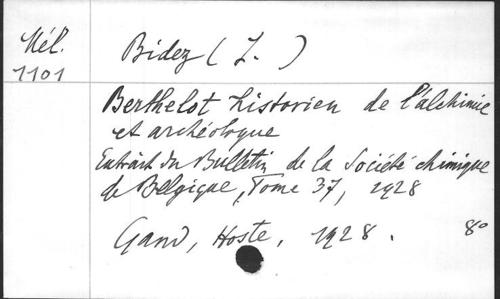 Mél.
1101
Bidez (J.)
Berthelot historien de l'alchimie
et archéologue
Extrait du Bulletin de la Société chimique
de Belgique, Tome 37, 1928
Gand, Hoste, 1928. 8º